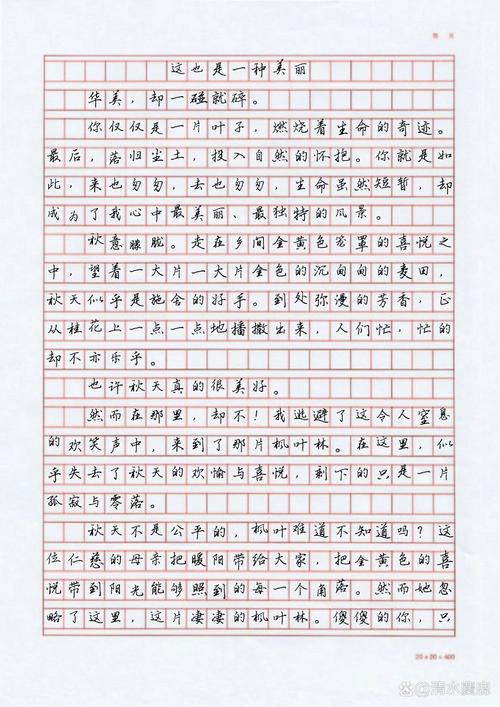 这也是一种美丽
华美，却一碰就碎。
你仅仅是一片叶子，燃烧着生命的奇迹。
最后，落归尘土，投入自然的怀抱。你就是如
此，来也匆匆，去也匆匆，生命虽然短暂，却
成为了我心中最美丽、最独特的风景。
秋意朦胧。走在乡间金黄色笼罩的喜悦之
中，望着一大片一大片金色的沉甸甸的麦田，
秋天似乎是施舍的好手。到处弥漫的芳香，正
从桂花上一点一点地播撒出来，人们忙，忙的
却不亦乐乎。
也许秋天真的很美好。
然而在那里，却不！我逃避了这令人窒息
的欢笑声中，来到了那片枫叶林。在这里，似
乎失去了秋天的欢愉与喜悦，剩下的只是一片
孤寂与零落。
秋天不是公平的，枫叶难道不知道吗？这
位仁慈的母亲把暖阳带给大家，把金黄色的喜
悦带到阳光能够照到的每一个角落。然而她忽
略了这里，这片凄凄的枫叶林。傻傻的你，只
20×20=400
清水麋鹿